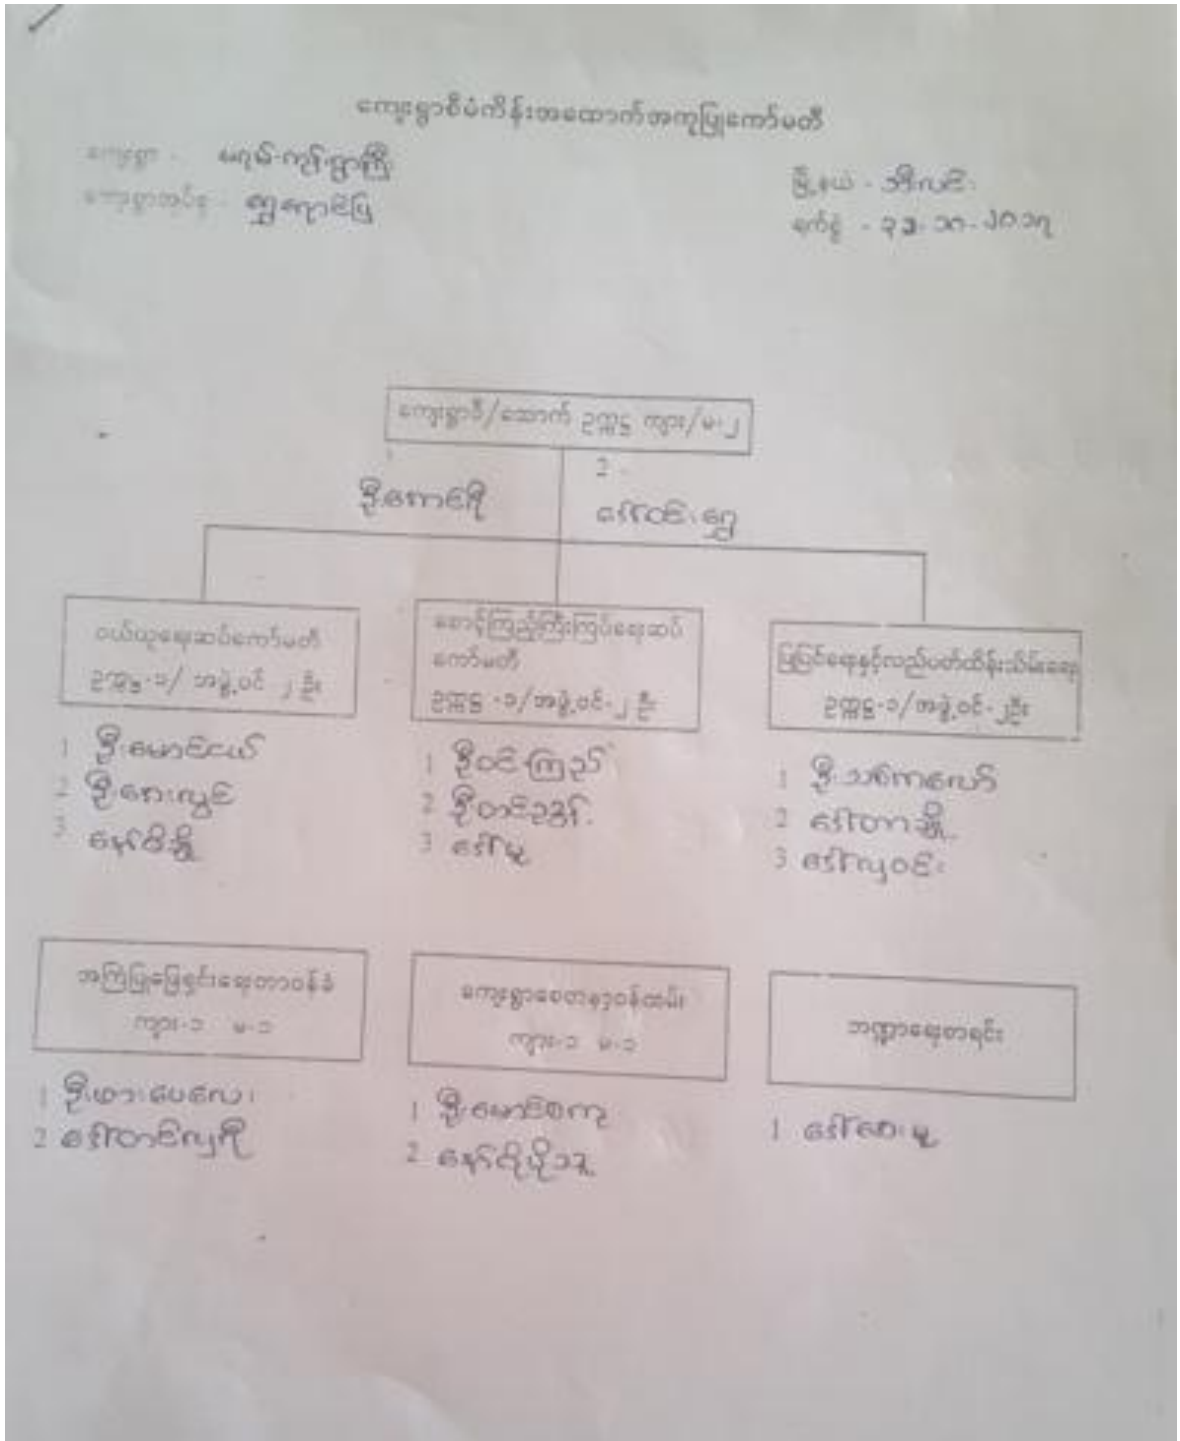 ကျေးရွာစီမံကိန်းအထောက်အကူပြုကော်မတီ
ကျေးရွာ - မရမ်းကုန်းရွာကြီး
ကျေးရွာအုပ်စု - ရွှေရောင်ပြ
မြို့နယ် - ဘီးလင်း
ရက်စွဲ - ၃၁-၁၀-၂၀၁၇
ကျေးရွာစီ/ထောက် ဥက္ကဌ ကျား/မ-၂
1
ဦးအောင်ကို
2
ဒေါ်ဝင်းရွှေ
ဝယ်ယူရေးဆပ်ကော်မတီ
ဥက္ကဌ-၁/ အဖွဲ့ဝင် ၂ ဦး
1 ဦးမောင်ငယ်
2 ဦးစောလွင်
3 နော်
စောင့်ကြည့်ကြီးကြပ်ရေးဆပ်
ကော်မတီ
ဥက္ကဌ -၁/အဖွဲ့ဝင်-၂ ဦး
1 ဦးဝင်းကြည်
2 ဦးတင်ညွန့်
3 ဒေါ်မူ
ပြုပြင်ရေးနှင့်လည်ပတ်ထိန်းသိမ်းရေး
ဥက္ကဌ-၁/အဖွဲ့ဝင်-၂ဦး
1 ဦးသစ်ကလော်
2 ဒေါ်တာ
3 ဒေါ်လှဝင်း
အကြံပြုဖြေရှင်းရေးတာဝန်ခံ
ကျား-၁ မ-၁
1 ဦးဖားပေလေး
2 ဒေါ်တင်လှကို
ကျေးရွာစေတနာ့ဝန်ထမ်း
ကျား-၁ မ-၁
1 ဦးမောင်စကု
2 နော်
ဘဏ္ဍာရေးစာရင်း
1 ဒေါ်အေးမူ